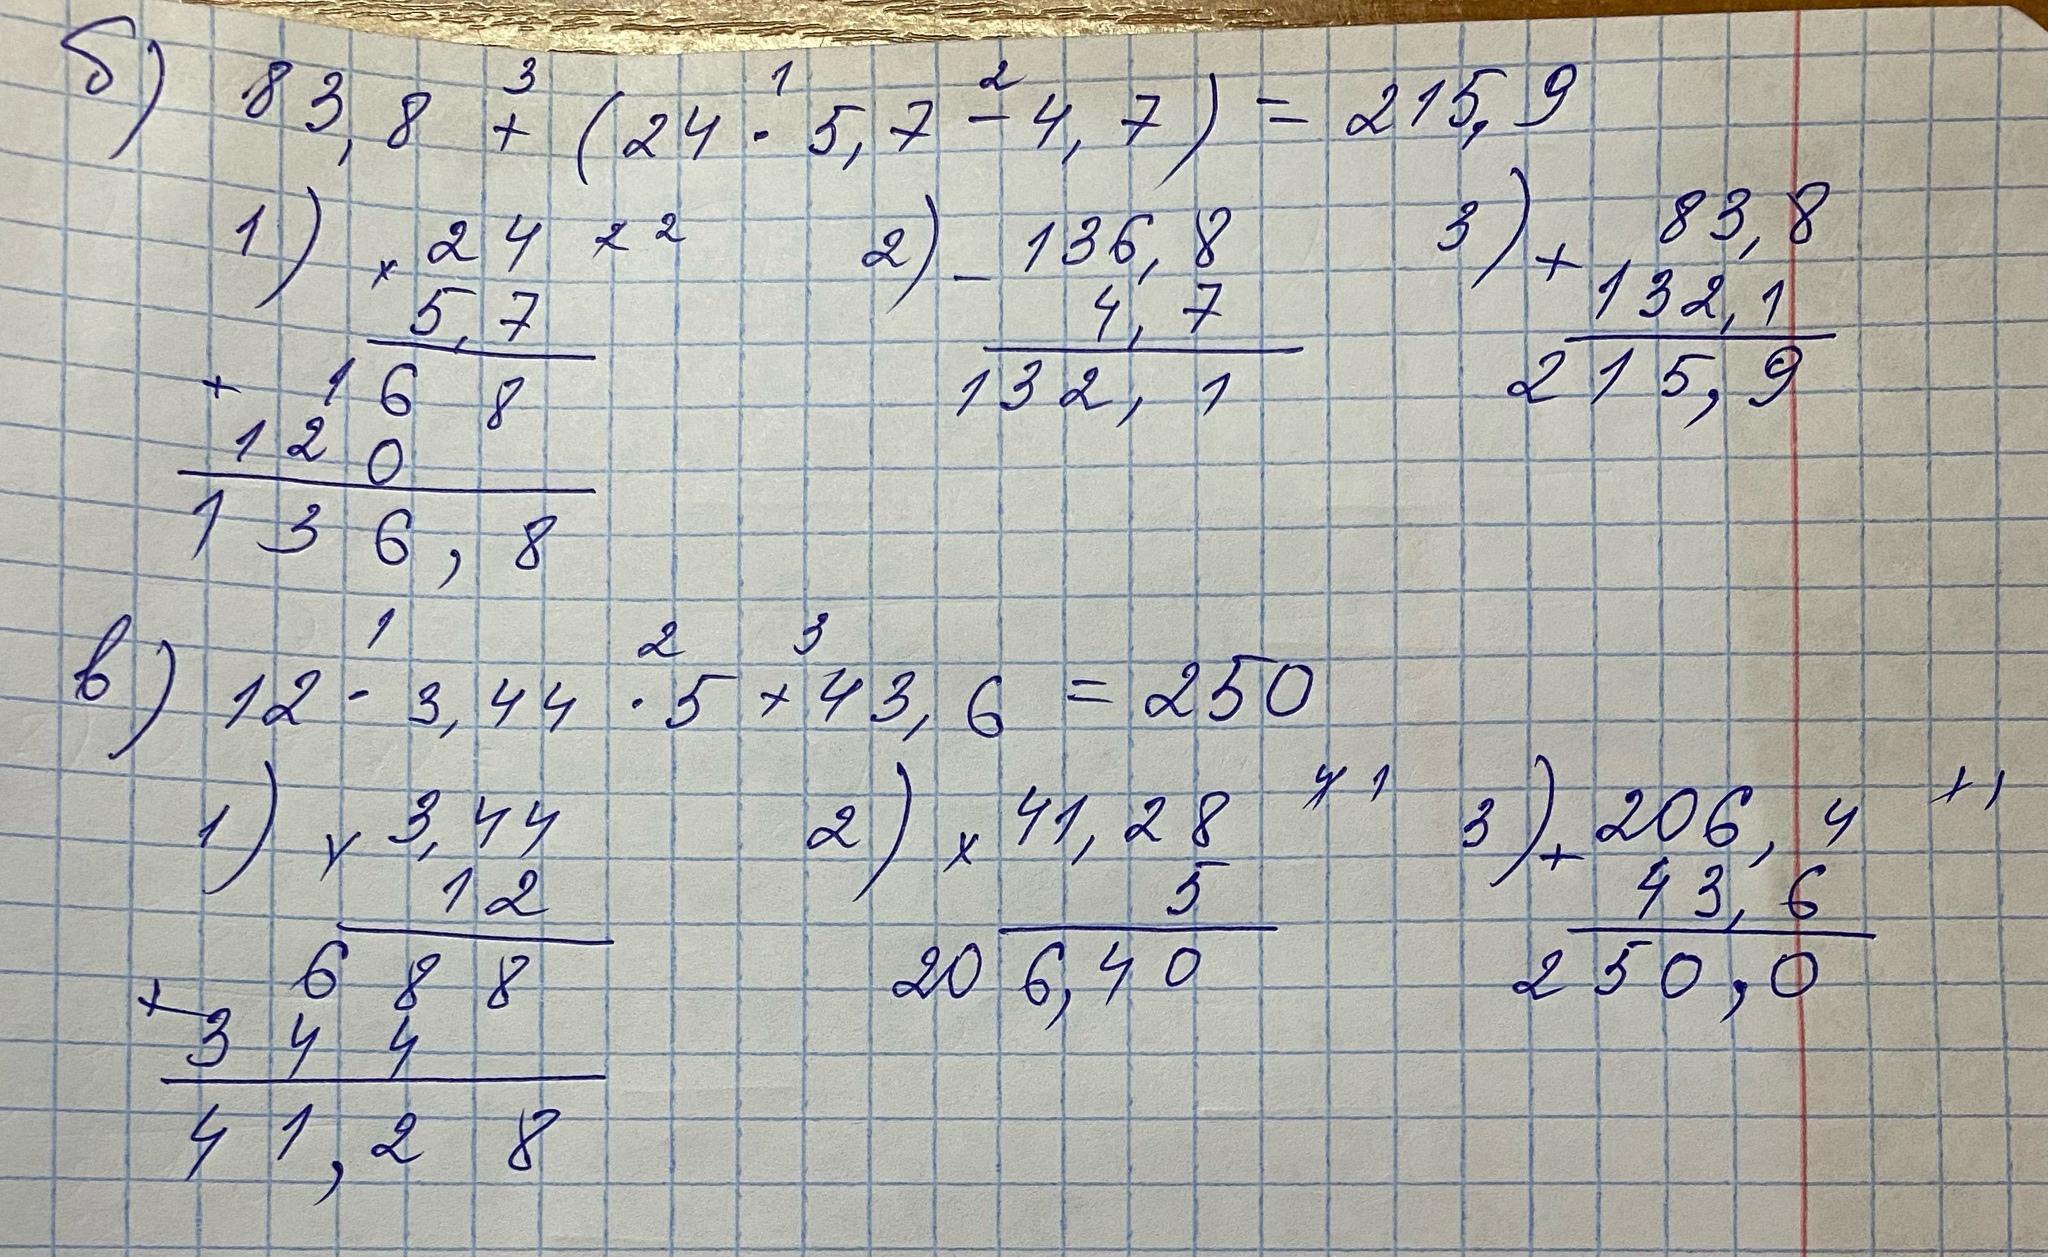 б) 83,8 + (24 · 5,7 - 4,7) = 215,9
3 1 2
1) 24 2) 136,8 3) 83,8
× 5,7 - 4,7 + 132,1
168 132,1 215,9
+ 120
136,8
1 2 3
в) 12 · 3,44 · 5 + 43,6 = 250
1) 3,44 2) 41,28 3) 206,4
× 12 × 5 + 43,6
688 206,40 250,0
+ 344
41,28